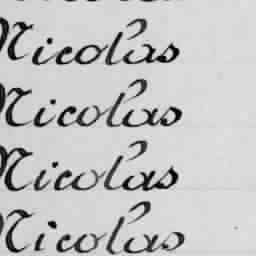 Nicolas
Nicolas
Nicolas
Nicolas